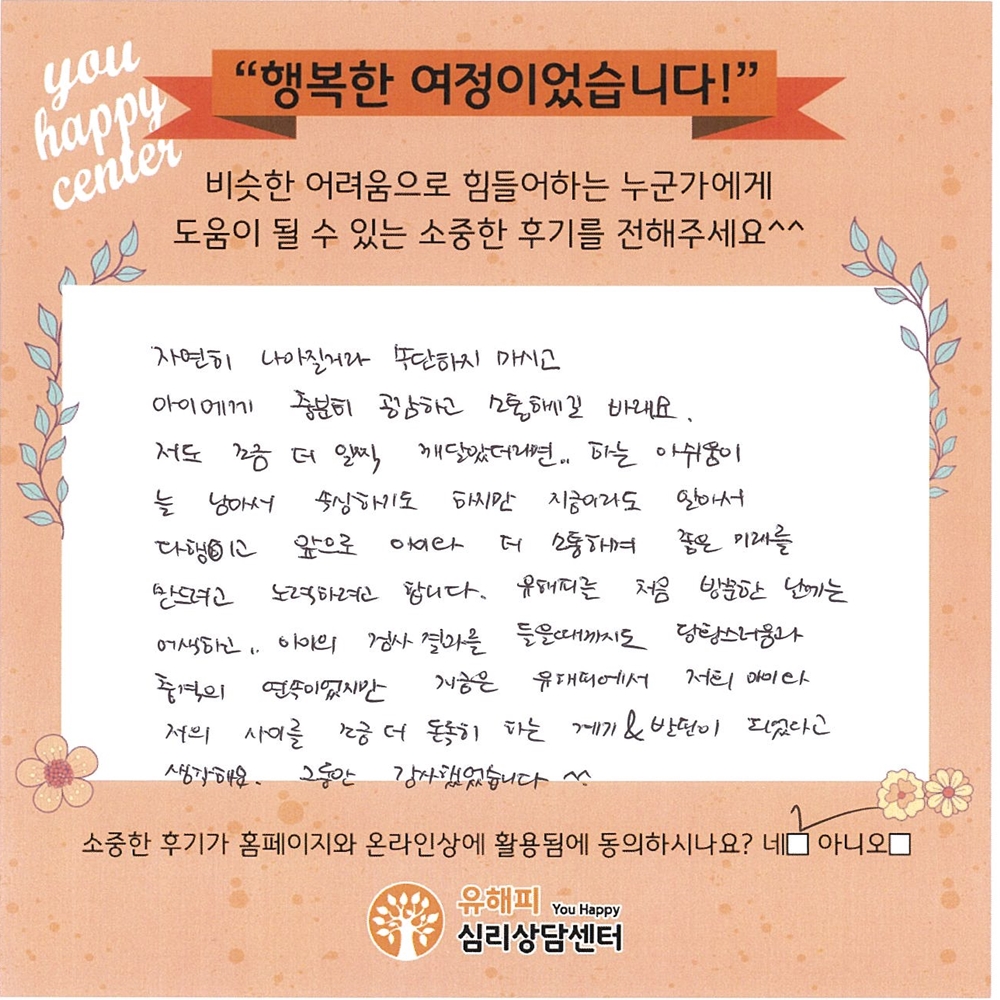 you
happy
center
“행복한 여정이었습니다!”
비슷한 어려움으로 힘들어하는 누군가에게
도움이 될 수 있는 소중한 후기를 전해주세요^^
자연히 나아질거라 속단하지 마시고
아이에게 충분히 공감하고 소통하길 바래요.
저도 조금 더 일찍 깨달았더라면.. 하는 아쉬움이
늘 남아서 속상하기도 하지만 지금이라도 알아서
다행이고 앞으로 아이와 더 소통하며 좋은 미래를
만드려고 노력하려고 합니다. 유해피는 처음 방문한 날에는
어색하고.. 아이의 검사 결과를 들을때까지도 당황스러움과
충격의 연속이었지만 지금은 유해피에서 저희 아이와
저의 사이를 조금 더 돈독히 하는 계기 & 발판이 되었다고
생각해요. 그동안 감사했었습니다 ^^
소중한 후기가 홈페이지와 온라인상에 활용됨에 동의하시나요? 네 아니오
유해피 You Happy
심리상담센터